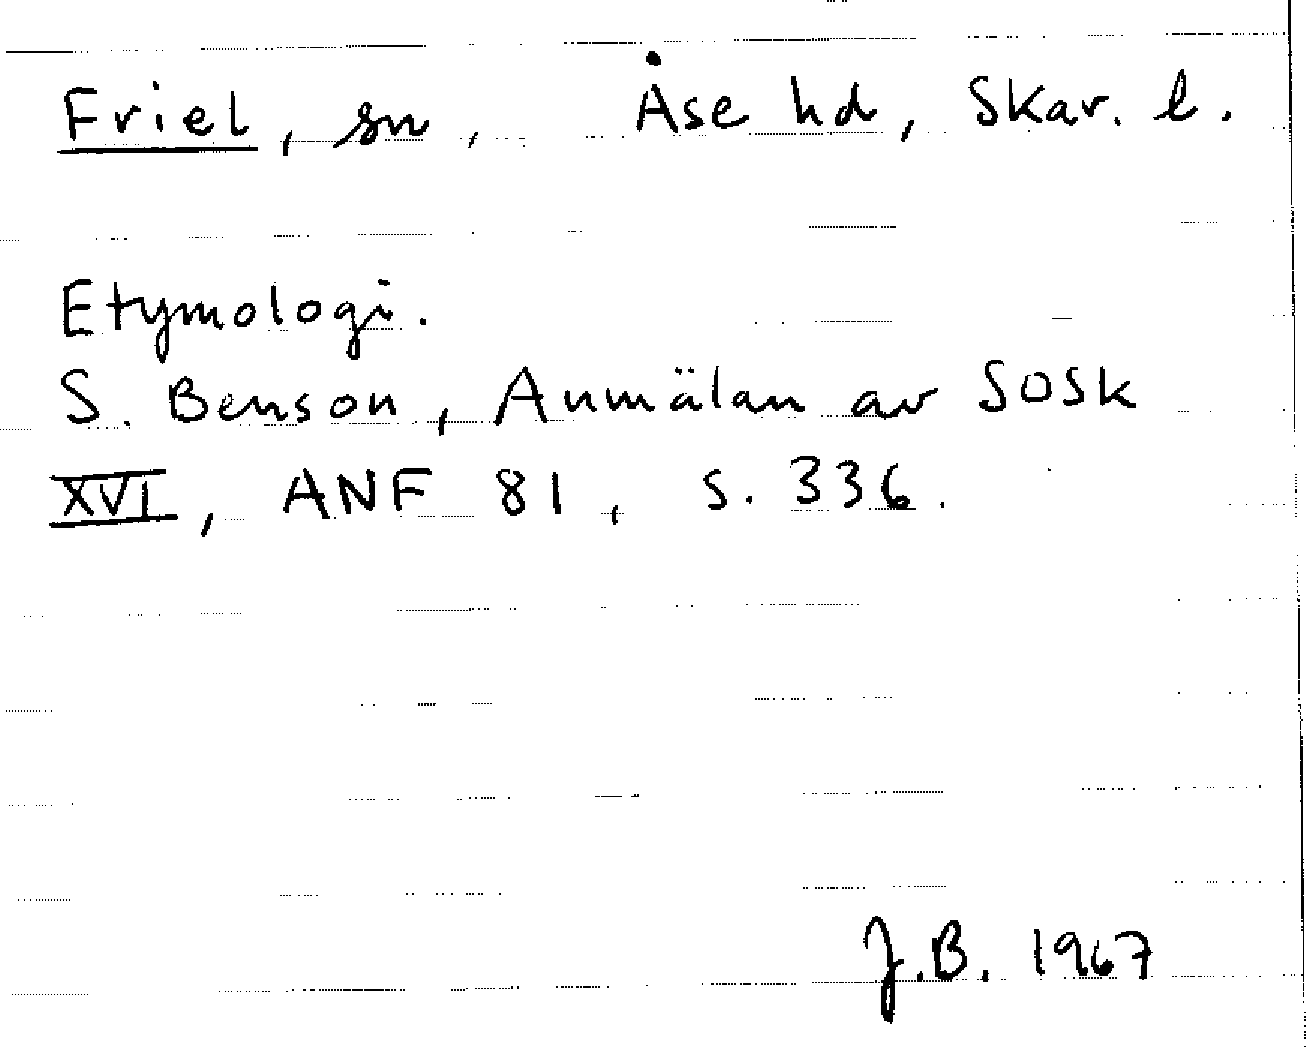 Friel, sn, Åse hd, Skar. l.
Etymologi.
S. Benson, Anmälan av SOSk
XVI, ANF 81, s. 336.
J.B. 1967